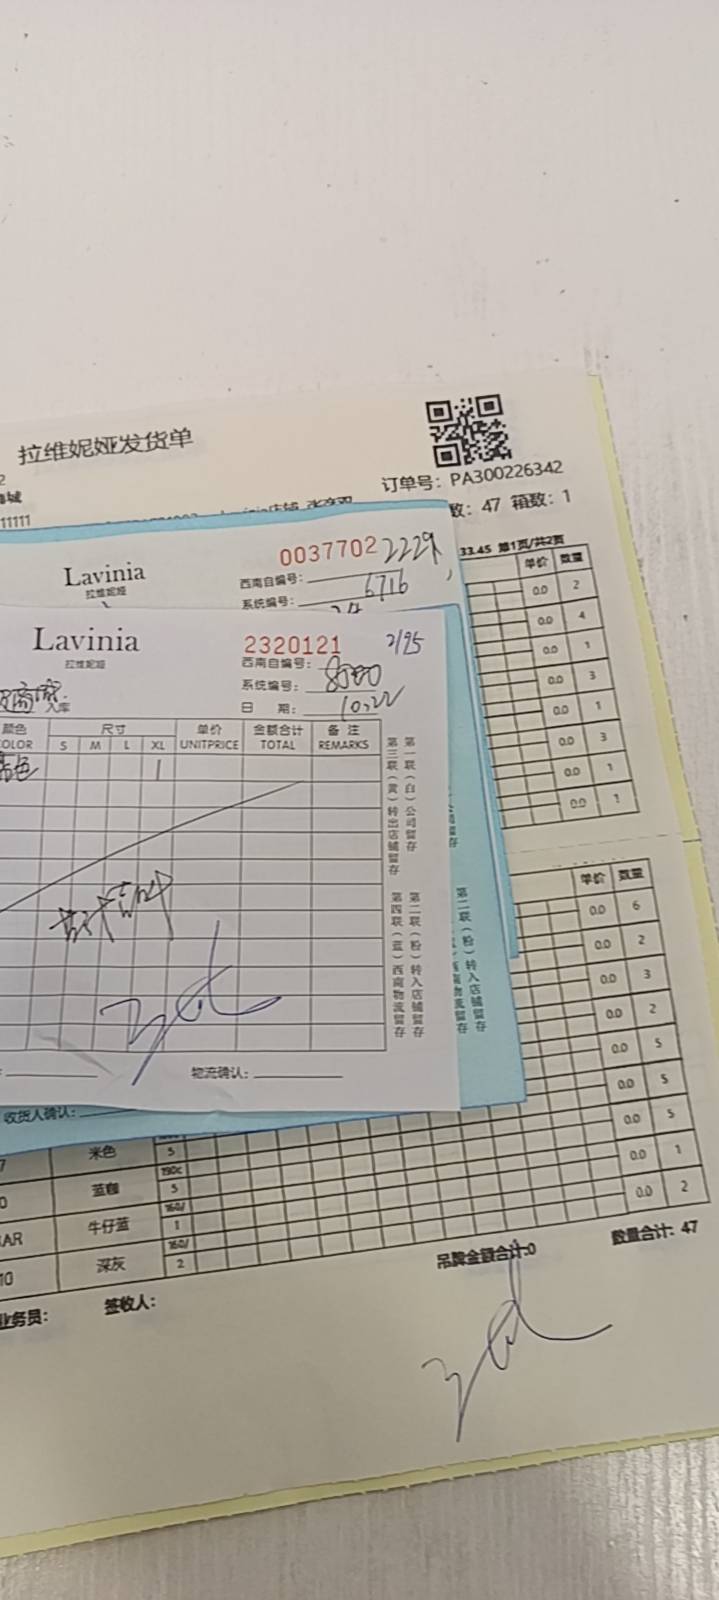 拉维妮娅发货单
订单号: PA300226342
数: 47 箱数: 1
11111
33.45 第1页/共2页
单价 数量
0.0 2
0.0 4
0.0 1
0.0 3
0.0 1
0.0 3
0.0 1
0.0 1
Lavinia
拉维妮娅
0037702 2229
西南自编号:
系统编号: 6716
Lavinia
拉维妮娅
2320121 2/95
西南自编号:
系统编号:
日 期: 10.22
入库
颜色 尺寸 单价 金额合计 备 注
COLOR S M L XL UNITPRICE TOTAL REMARKS
色 1
第一联(白)公司留存
第三联(黄)转出店铺留存
第二联(粉)转入店铺留存
第四联(蓝)西南物流留存
物流确认:
第二联(粉)转入店铺留存
收货人确认:
单价 数量
0.0 6
0.0 2
0.0 3
0.0 2
0.0 5
0.0 5
0.0 5
0.0 1
0.0 2
7 米色 5
190c
0 蓝咖 5
160/
AR 牛仔蓝 1
160/
10 深灰 2
吊牌金额合计:0 数量合计: 47
业务员: 签收人: